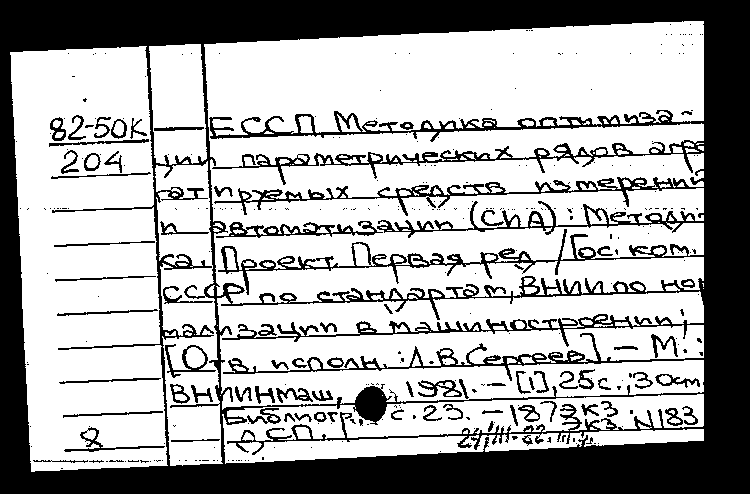 82-50К — ЕССП. Методика оптимиза-
204 ции параметрических рядов агре
гатируемых средств измерений
и автоматизации (СИА): Методи-
ка. Проект. Первая ред / Гос. ком.
СССР по стандартам, ВНИИ по нор
мализации в машиностроении;
[Отв. исполн.: Л.В.Сергеев]. — М.:
ВНИИНмаш, 1981. — [1], 25 с.; 30 см.
Библиогр. с. 23. — 187 экз.
8 ДСП. Экз. N183